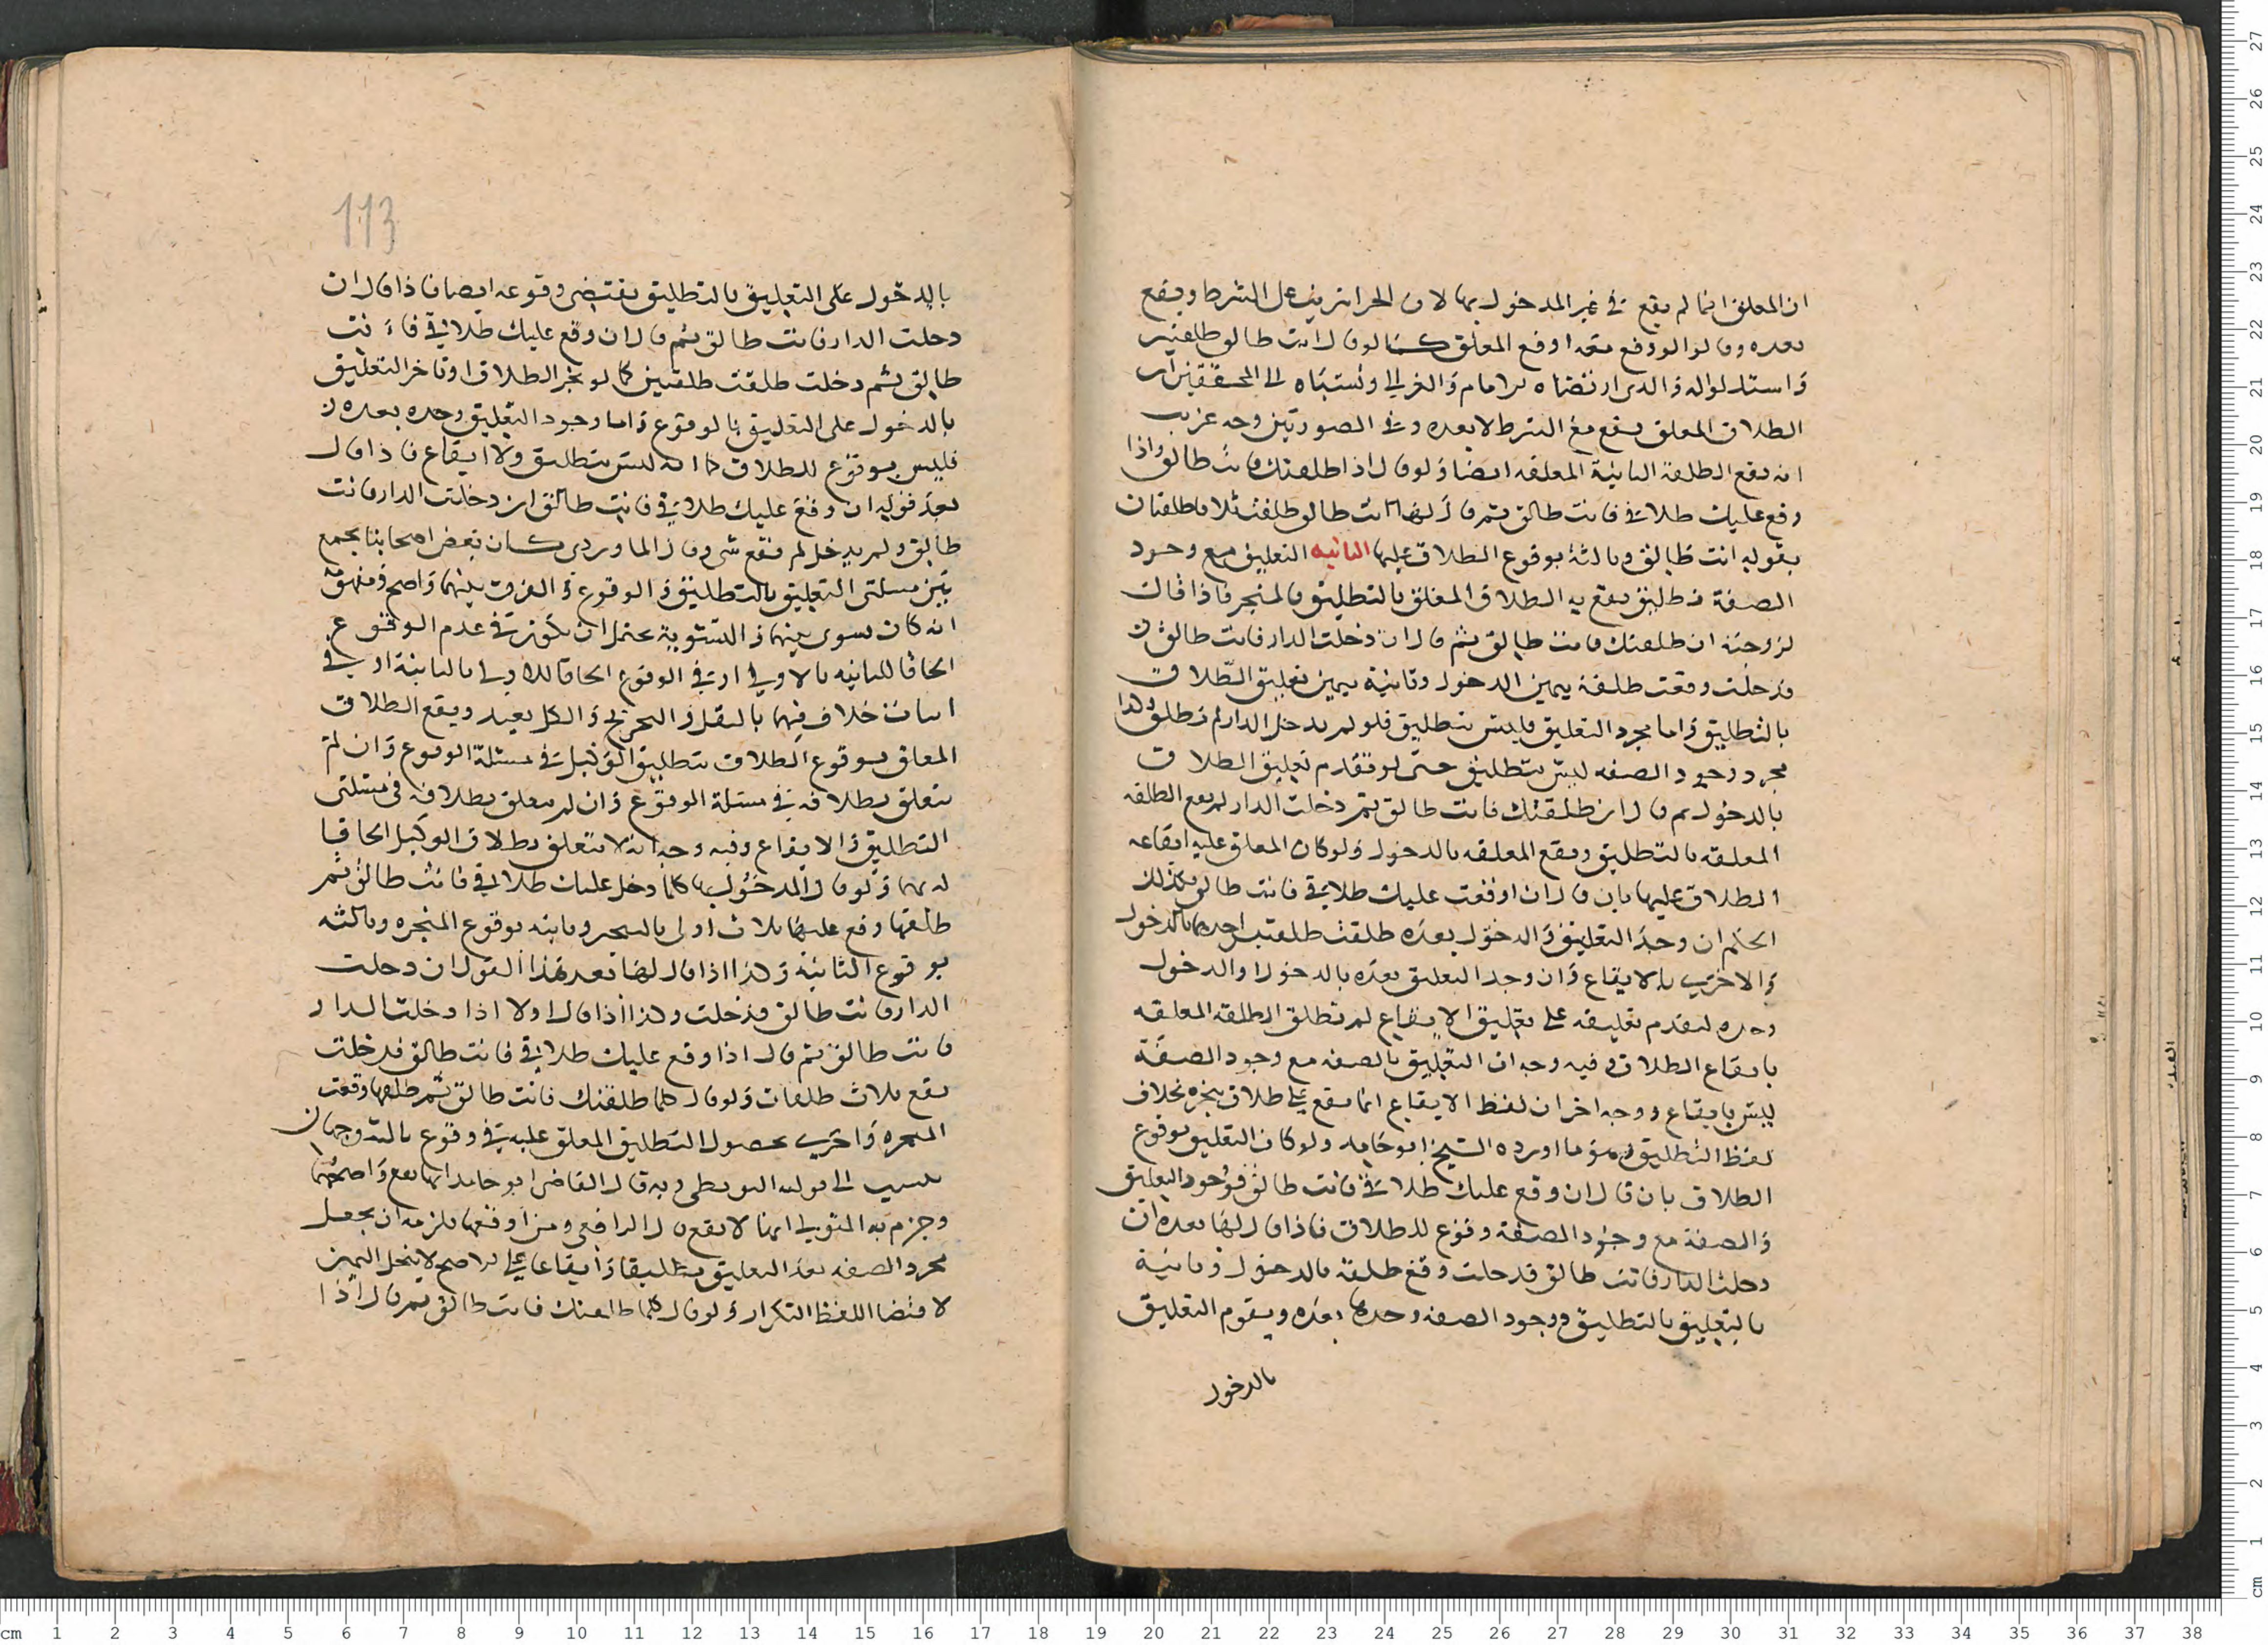 ان المعلق انما لم يقع في غير المدخول بها لان الجزا يترتب على الشرط ويقع
بعده وقالوا لو وقع معه اوقع المعلق كما لو قال انت طالق طلقتين
واستدلوا له والذي ارتضاه الامام والغزالي ونسباه الى المحققين ان
الطلاق المعلق يقع مع الشرط لا بعده وفي الصورتين وجه غريب
انه يقع الطلقة الثانية المعلقه ايضا ولو قال اذا طلقتك فانت طالق واذا
وقع عليك طلاقي فانت طالق ثم قال لها انت طالق طلقت ثلاثا طلقتان
بقوله انت طالق وثالثة بوقوع الطلاق عليها الثانيه التعليق مع وجود
الصفة تطليق يقع به الطلاق المعلق بالتطليق كالمنجر فاذا قال
لزوجته ان طلقتك فانت طالق ثم قال ان دخلت الدار فانت طالق
فدخلت وقعت طلقة بيمين الدخول وثانية بيمين تعليق الطلاق
بالتطليق واما مجرد التعليق فليس بتطليق فلو لم يدخل الدار لم تطلق وكذا
مجرد وجود الصفه ليس بتطليق حتى لو تقدم تعليق الطلاق
بالدخول ثم قال ان طلقتك فانت طالق ثم دخلت الدار لم يقع الطلقه
المعلقه بالتطليق ويقع المعلقه بالدخول ولو كان المعلق عليه ايقاعه
الطلاق عليها بان قال ان اوقعت عليك طلاقي فانت طالق فكذلك
الحكم ان وجد التعليق والدخول بعده طلقت طلقتين احدهما بالدخول
والاخرى بالايقاع وان وجد التعليق بعده بالدخول او الدخول
وحده لتقدم تعليقه على تعليق الايقاع لم تطلق الطلقه المعلقه
بايقاع الطلاق وفيه وجه ان التعليق بالصفه مع وجود الصفة
ليس بايقاع ووجه اخر ان لفظ الايقاع انما يقع على طلاق ينجزه بخلاف
لفظ التطليق وهو ما اورده الشيخ ابو حامد ولو كان التعليق بوقوع
الطلاق بان قال ان وقع عليك طلاقي فانت طالق فوجود التعليق
والصفة مع وجود الصفة وقوع للطلاق فاذا قال لها بعده ان
دخلت الدار فانت طالق فدخلت وقع طلقة بالدخول وثانية
بالتعليق بالتطليق ووجود الصفه وحدها بعده ويقوم التعليق
بالدخول
113
بالدخول على التعليق بالتطليق يقتضي وقوعه ايضا فاذا قال ان
دخلت الدار فانت طالق ثم قال ان وقع عليك طلاقي فانت
طالق ثم دخلت طلقت طلقتين كما لو نجز الطلاق او تاخر التعليق
بالدخول على التعليق بالوقوع واما وجود التعليق وحده بعده
فليس بوقوع للطلاق كما انه ليس بتطليق ولا ايقاع فاذا قال
بعد قوله ان وقع عليك طلاقي فانت طالق ان دخلت الدار فانت
طالق ولم يدخل لم يقع شي وقال الماوردي كان بعض اصحابنا يجمع
بين مسلتي التعليق بالتطليق والوقوع والفرق بينهما واضح ومفهومه
انه كان يسوي بينهما والتسوية يحتمل ان تكون في عدم الوقوع
الحاقا للثانيه بالاولى او في الوقوع الحاقا للاولى بالثانية او في
اثبات خلاف فيهما بالنقل والتخريج والكل بعيد ويقع الطلاق
المعلق بوقوع الطلاق بتطليق الوكيل في مسئلة الوقوع وان لم
يتعلق بطلاقه في مسئلة الوقوع وان لم يتعلق بطلاقه في مسئلتي
التطليق والايقاع وفيه وجه انه لا يتعلق بطلاق الوكيل الحاقا
له بهما ولو قال للمدخول بها كلما وقع عليك طلاقي فانت طالق ثم
طلقها وقع عليها ثلاث اولى بالتنجيز وثانيه بوقوع المنجزه وثالثه
بوقوع الثانية وكذا اذا قال لها بعد هذا القول ان دخلت
الدار فانت طالق فدخلت وكذا اذا قال اولا اذا دخلت الدار
فانت طالق ثم قال اذا وقع عليك طلاقي فانت طالق فدخلت
يقع ثلاث طلقات ولو قال كلما طلقتك فانت طالق ثم طلقها وقعت
المنجزه واخرى بحصول التطليق المعلق عليه في وقوع ثالثة وجهان
ينسب الى قوله البويطي وبه قال القاضي ابو حامد انها تقع واصحهما
وجزم به المتولي انها لا تقع قال الرافعي ومن اوقعها يلزمه ان يجعل
مجرد الصفه بعد التعليق تطليقا وايقاعا على الاصح لا ينحل اليمين
لاقتضا اللفظ التكرار ولو قال كلما طلقتك فانت طالق ثم قال اذا